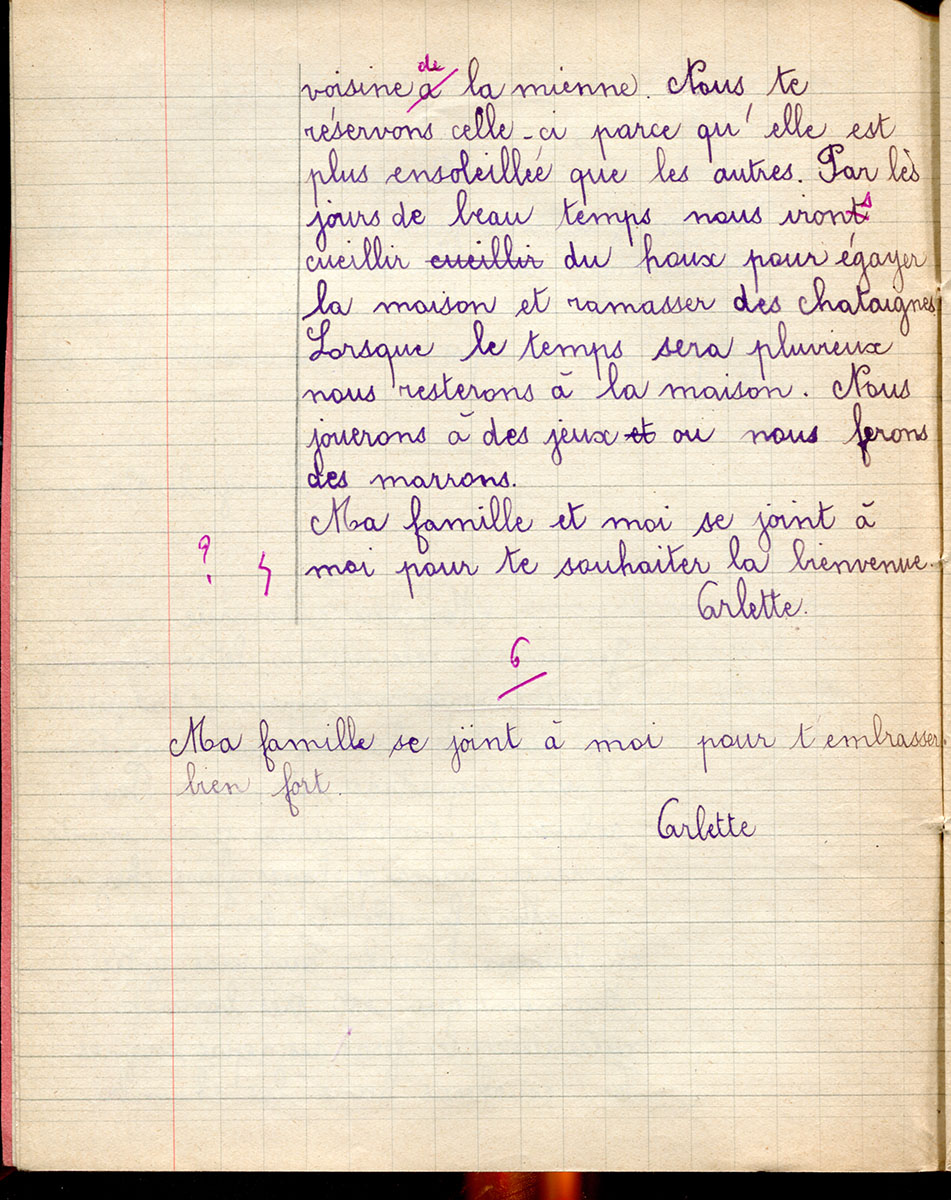 de
voisine à la mienne. Nous te
réservons celle-ci parce qu'elle est
plus ensoleillée que les autres. Par lès
jours de beau temps nous iront s
cueillir cueillir du houx pour égayer
la maison et ramasser des chataignes
Lorsque le temps sera pluvieux
nous resterons à la maison. Nous
jouerons à des jeux et ou nous ferons
des marrons.
Ma famille et moi se joint à
? moi pour te souhaiter la bienvenue.
Arlette.
6
Ma famille se joint à moi pour t'embrasser
bien fort.
Arlette